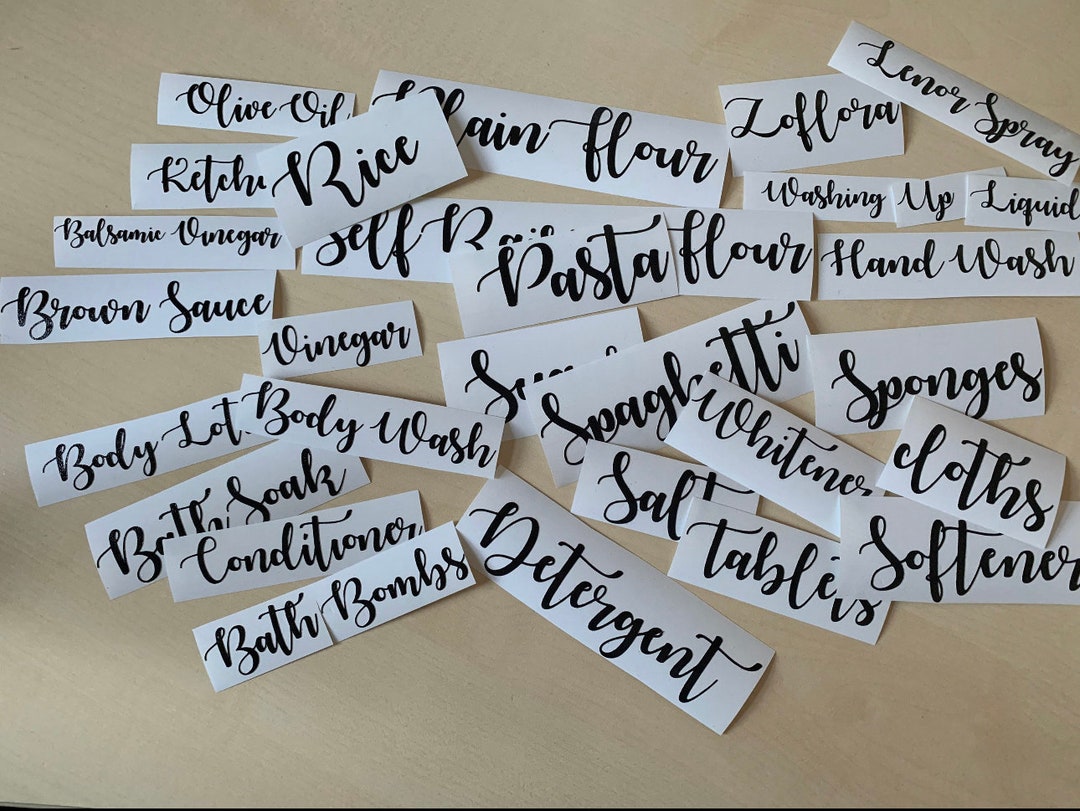 Olive Oil
Plain flour
Zoflora
Lenor Spray
Rice
Washing Up Liquid
Balsamic Vinegar
Self
flour
Pasta
Hand Wash
Brown Sauce
Vinegar
Spaghetti
Sponges
Body
Body Wash
Whitener
cloths
Bath Soak
Salt
Conditioner
Tablets
Softener
Detergent
Bath Bombs